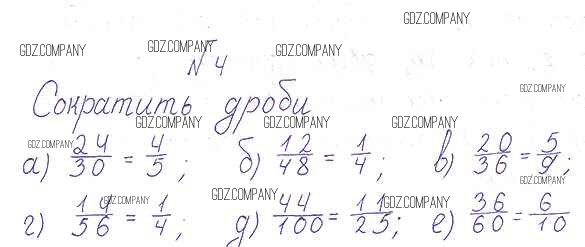 GDZ.COMPANY
GDZ.COMPANY GDZ.COMPANY GDZ.COMPANY
№ 4
GDZ.COMPANY
Сократить дроби
GDZ.COMPANY GDZ.COMPANY GDZ.COMPANY
GDZ.COMPANY
а) 24/30 = 4/5; б) 12/48 = 1/4; в) 20/36 = 5/9;
GDZ.COMPANY
GDZ.COMPANY GDZ.COMPANY GDZ.COMPANY
г) 14/56 = 1/4; д) 44/100 = 11/25; е) 36/60 = 6/10